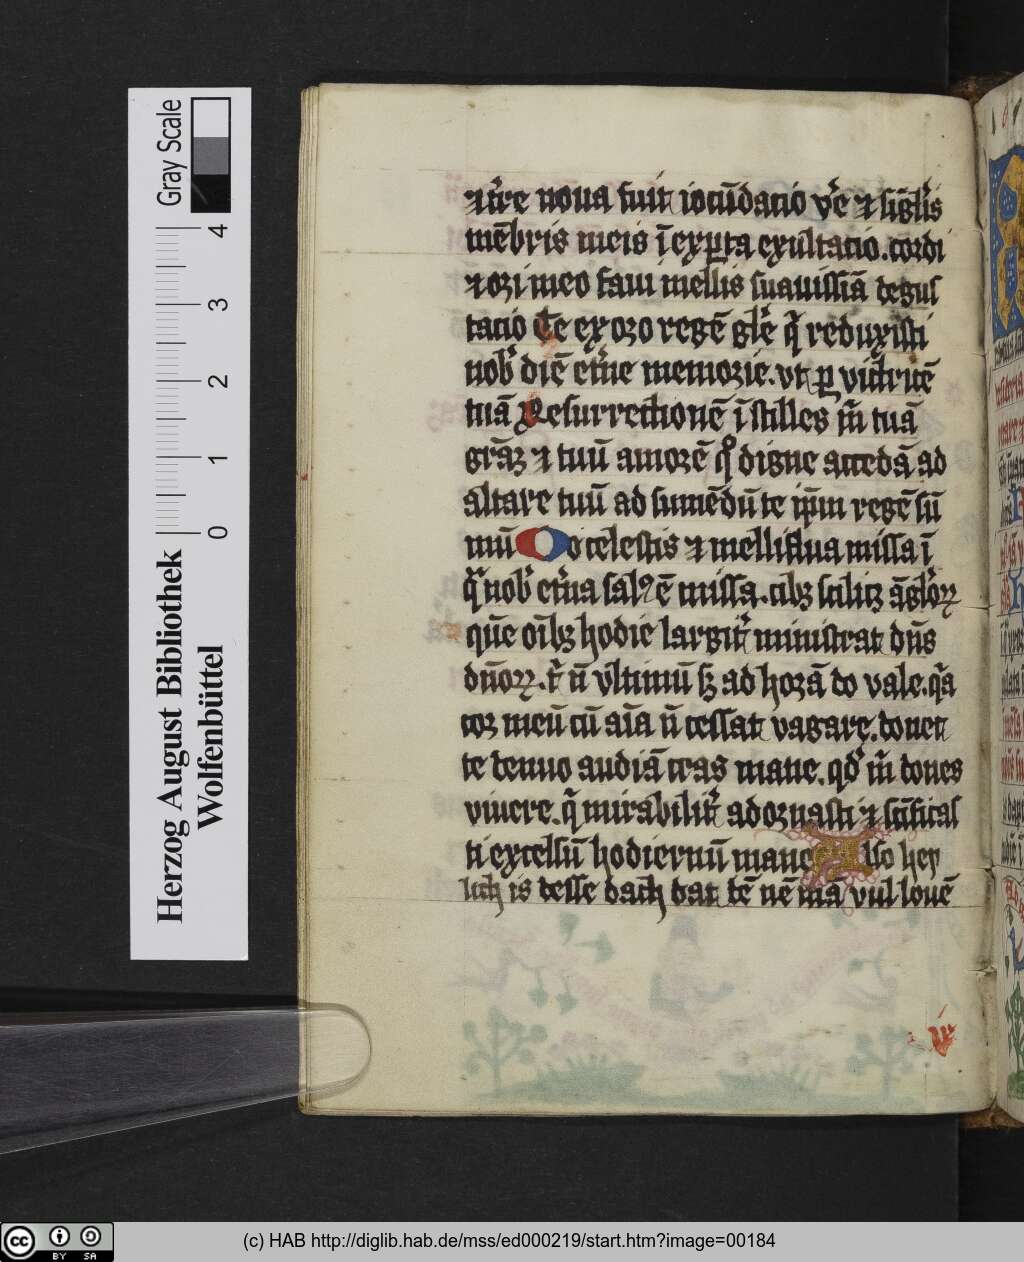 Gray Scale
4
3
2
1
0
Herzog August Bibliothek
Wolfenbüttel
noua fuit iocūdacio v̓e ⁊ sīgl̓is
mēbris meis ī exp̲ta exultacio. cordi
⁊ ori meo faui mellis suauissiā degus
tacio Te exoro regē gl̓e q̄ reduxisti
nob̓ diē et̓ne memorie. vt p̲ victricē
tuā Resurrectionē īstilles m̄ tuā
grāȝ ⁊ tuū amorē qͦ digne accedā ad
altare tuū ad sumēdū te ip̄m regē sū
mū O celestis ⁊ melliflua missa ī
nob̓ et̓na salꝰ ē missa. cibȝ scilicȝ āgl̓oꝝ
quē oībȝ hodie largit̓ ministrat dn̄s
dn̄oꝝ. n̄ vltimū sȝ ad horā do vale. q̄a
cor meū cū aīa n̄ cessat vagare. donec
te denuo audiā cras mane. qd̓ m̄ dones
viuere. q̄ mirabilit̓ adornasti ⁊ sc̄ificas
ti excelsū hodiernū mane Also her
lich is desse dach dat dē nē mā vul louē
(c) HAB http://diglib.hab.de/mss/ed000219/start.htm?image=00184
cc BY SA